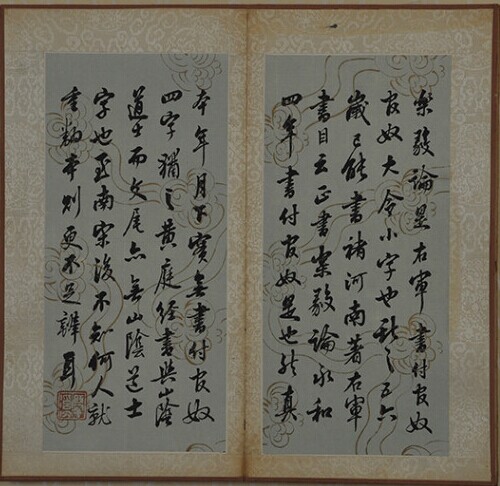 樂毅論是右軍書付官奴
官奴大令小字也之五六
歲已能書褚河南著右軍
書目云正書樂毅論永和
四年書付官奴是也然真
本年月下實無書付官奴
四字猶之黃庭經書與山陰
道士而文尾亦無山陰道士
字也至南宋後不知何人就
重本則更不足辨耳